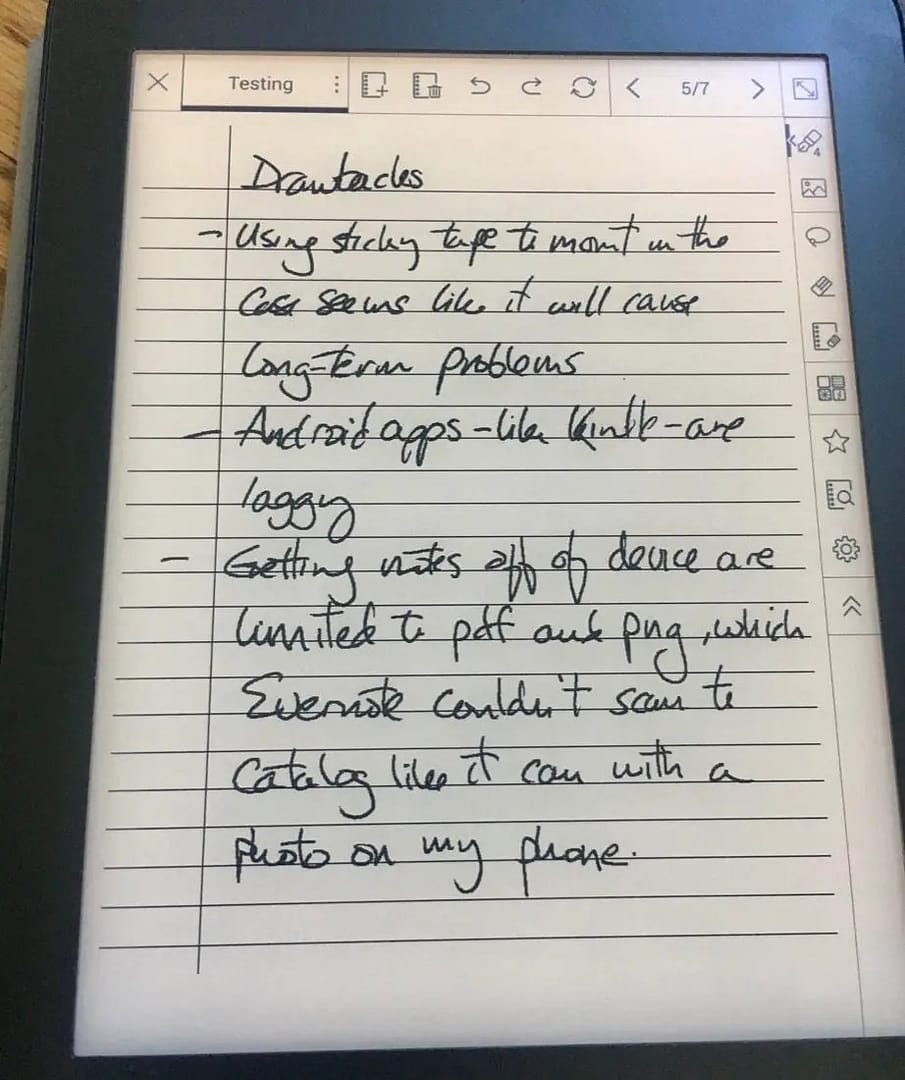 Testing
5/7
Drawbacks
- Using sticky tape to mount in the
case seems like it will cause
long-term problems
- Android apps - like Kindle - are
laggy
- Getting notes off of device are
limited to pdf and png, which
Evernote couldn't scan to
catalog like it can with a
photo on my phone.